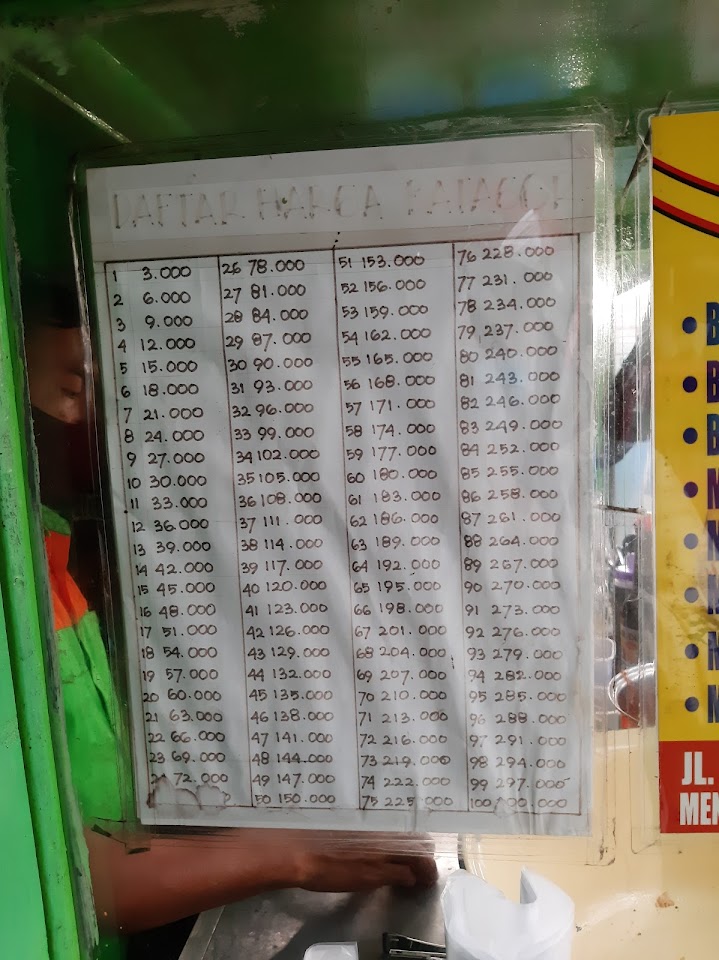 DAFTAR HARGA BATAGOR
1 3.000
2 6.000
3 9.000
4 12.000
5 15.000
6 18.000
7 21.000
8 24.000
9 27.000
10 30.000
11 33.000
12 36.000
13 39.000
14 42.000
15 45.000
16 48.000
17 51.000
18 54.000
19 57.000
20 60.000
21 63.000
22 66.000
23 69.000
24 72.000
26 78.000
27 81.000
28 84.000
29 87.000
30 90.000
31 93.000
32 96.000
33 99.000
34 102.000
35 105.000
36 108.000
37 111.000
38 114.000
39 117.000
40 120.000
41 123.000
42 126.000
43 129.000
44 132.000
45 135.000
46 138.000
47 141.000
48 144.000
49 147.000
50 150.000
51 153.000
52 156.000
53 159.000
54 162.000
55 165.000
56 168.000
57 171.000
58 174.000
59 177.000
60 180.000
61 183.000
62 186.000
63 189.000
64 192.000
65 195.000
66 198.000
67 201.000
68 204.000
69 207.000
70 210.000
71 213.000
72 216.000
73 219.000
74 222.000
75 225.000
76 228.000
77 231.000
78 234.000
79 237.000
80 240.000
81 243.000
82 246.000
83 249.000
84 252.000
85 255.000
86 258.000
87 261.000
88 264.000
89 267.000
90 270.000
91 273.000
92 276.000
93 279.000
94 282.000
95 285.000
96 288.000
97 291.000
98 294.000
99 297.000
100
JL.